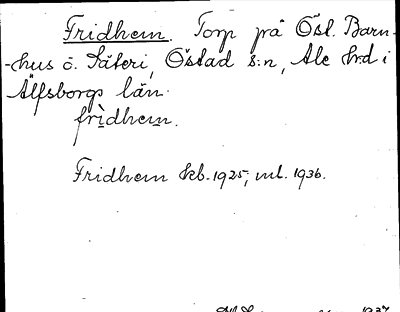 Fridhem. Torp på Östl. Barn-
-hus o. Säteri, Östad s:n, Ale hrd i
Älfsborgs län.
fri̱dhem.
Fridhem kb. 1925, ml. 1936.
1937